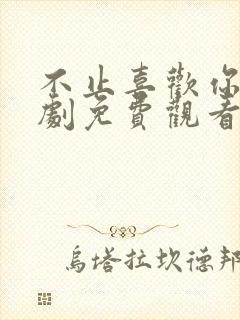 不止喜歡你
劇免費觀看
烏塔拉坎德邦